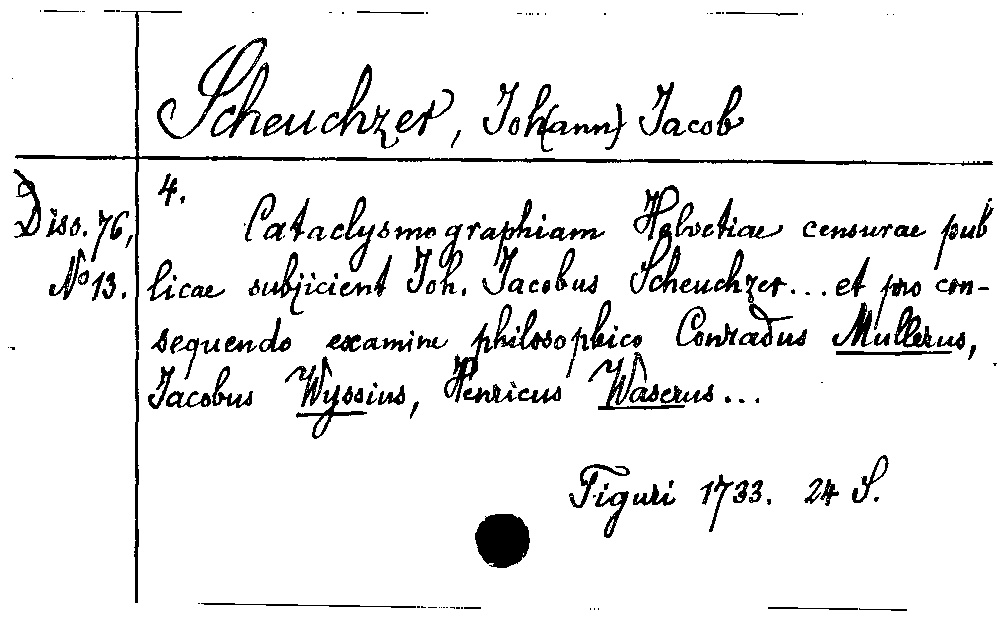 Scheuchzer, Joh(ann) Jacob
Diss. 76,
No 13.
4.
Cataclysmographiam Helvetiae censurae pub
licae subjicient Joh. Jacobus Scheuchzer... et pro con-
sequendo examine philosophico Conradus Mullerus,
Jacobus Wyssius, Henricus Waserus...
Tiguri 1733. 24 S.